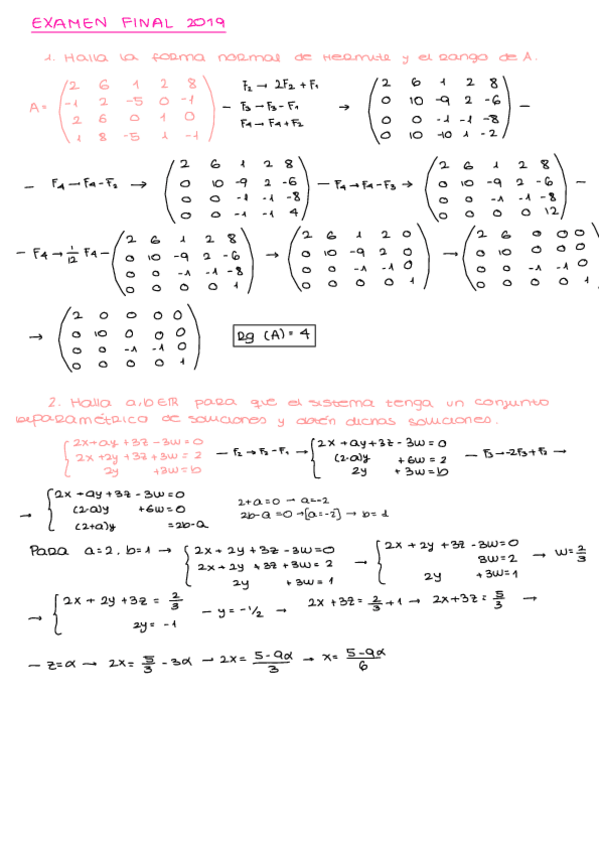 EXAMEN FINAL 2019
1. Halla la forma normal de Hermite y el rango de A.
A = (2 6 1 2 8 / -1 2 -5 0 -1 / 2 6 0 1 0 / 1 8 -5 1 -1) - F2 → 2F2 + F1 - F3 → F3 - F1 F4 → F4 + F2 → (2 6 1 2 8 / 0 10 -9 2 -6 / 0 0 -1 -1 -8 / 0 10 -10 1 -2) -
- F4 → F4 - F2 → (2 6 1 2 8 / 0 10 -9 2 -6 / 0 0 -1 -1 -8 / 0 0 -1 -1 4) - F4 → F4 - F3 → (2 6 1 2 8 / 0 10 -9 2 -6 / 0 0 -1 -1 -8 / 0 0 0 0 12) -
- F4 → 1/12 F4 - (2 6 1 2 8 / 0 10 -9 2 -6 / 0 0 -1 -1 -8 / 0 0 0 0 1) → (2 6 1 2 0 / 0 10 -9 2 0 / 0 0 -1 -1 0 / 0 0 0 0 1) → (2 6 0 0 0 / 0 10 0 0 0 / 0 0 -1 -1 0 / 0 0 0 0 1
→ (2 0 0 0 0 / 0 10 0 0 0 / 0 0 -1 -1 0 / 0 0 0 0 1) Rg (A) = 4
2. Halla a,b ∈ R para que el sistema tenga un conjunto
biparamétrico de soluciones y datén dichas soluciones.
{2x+ay+3z-3w=0 / 2x+2y+3z+3w=2 / 2y +3w=b - F2 → F2 - F1 → {2x+ay+3z-3w=0 / (2-a)y +6w=2 / 2y +3w=b - F3 → -2F3 + F2 →
→ {2x+ay+3z-3w=0 / (2-a)y +6w=0 / (2+a)y =2b-a 2+a=0 → a=-2 2b-a=0 → [a=-2] → b=1
Para a=2, b=1 → {2x+2y+3z-3w=0 / 2x+2y+3z+3w=2 / 2y +3w=1 → {2x+2y+3z-3w=0 / 3w=2 / 2y +3w=1 → w=2/3
→ {2x+2y+3z=2/3 / 2y=-1 - y=-1/2 → 2x+3z=2/3+1 → 2x+3z=5/3 →
- z=α → 2x=5/3-3α → 2x=5-9α/3 → x=5-9α/6